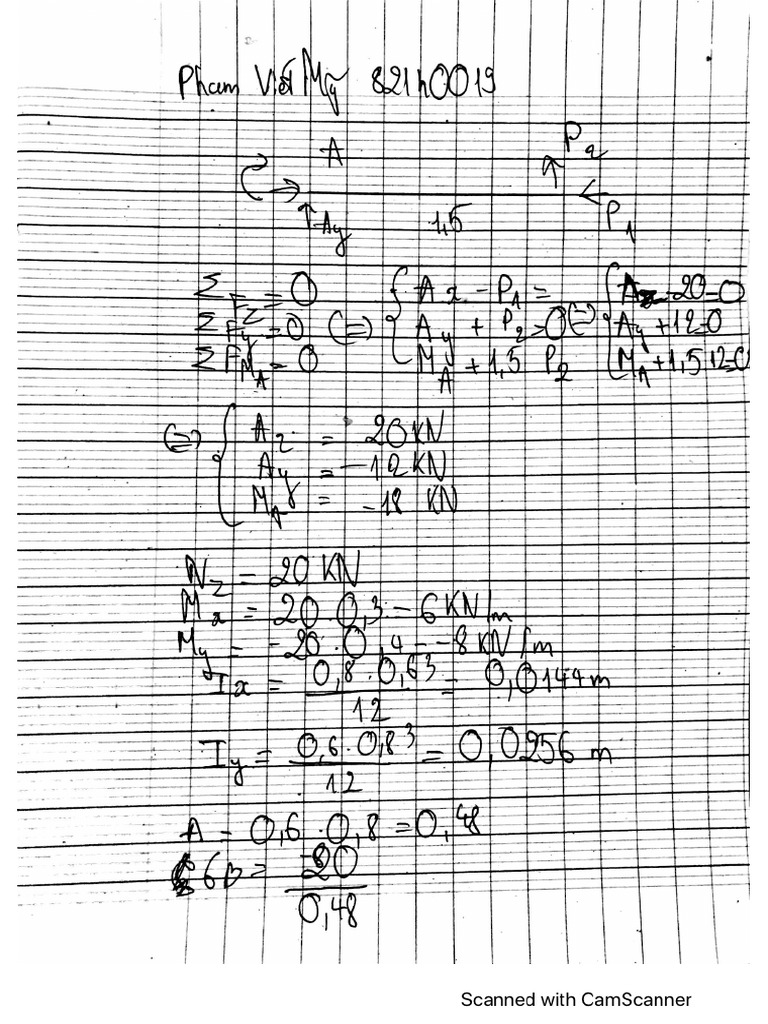 Phạm Viết Mỹ 821h0019
A
P2
Ay
1,5
P1
ΣFz = 0 { Az - P1 = { Az - 20 = 0
ΣFy = 0 (=) { Ay + P2 = 0 (=) { Ay + 12 = 0
ΣFMA = 0 { MA + 1,5 P2 { MA + 1,5 12 = 0
(=) { Az = 20 KN
Ay = -12 KN
MA = -18 KN
Nz = 20 KN
Mx = 20 . 0,3 = 6 KN/m
My = -20 . 0,4 = -8 KN/m
Ix = 0,8 . 0,6³ / 12 = 0,0144 m
Iy = 0,6 . 0,8³ / 12 = 0,0256 m
A = 0,6 . 0,8 = 0,48
6B = 20 / 0,48
Scanned with CamScanner